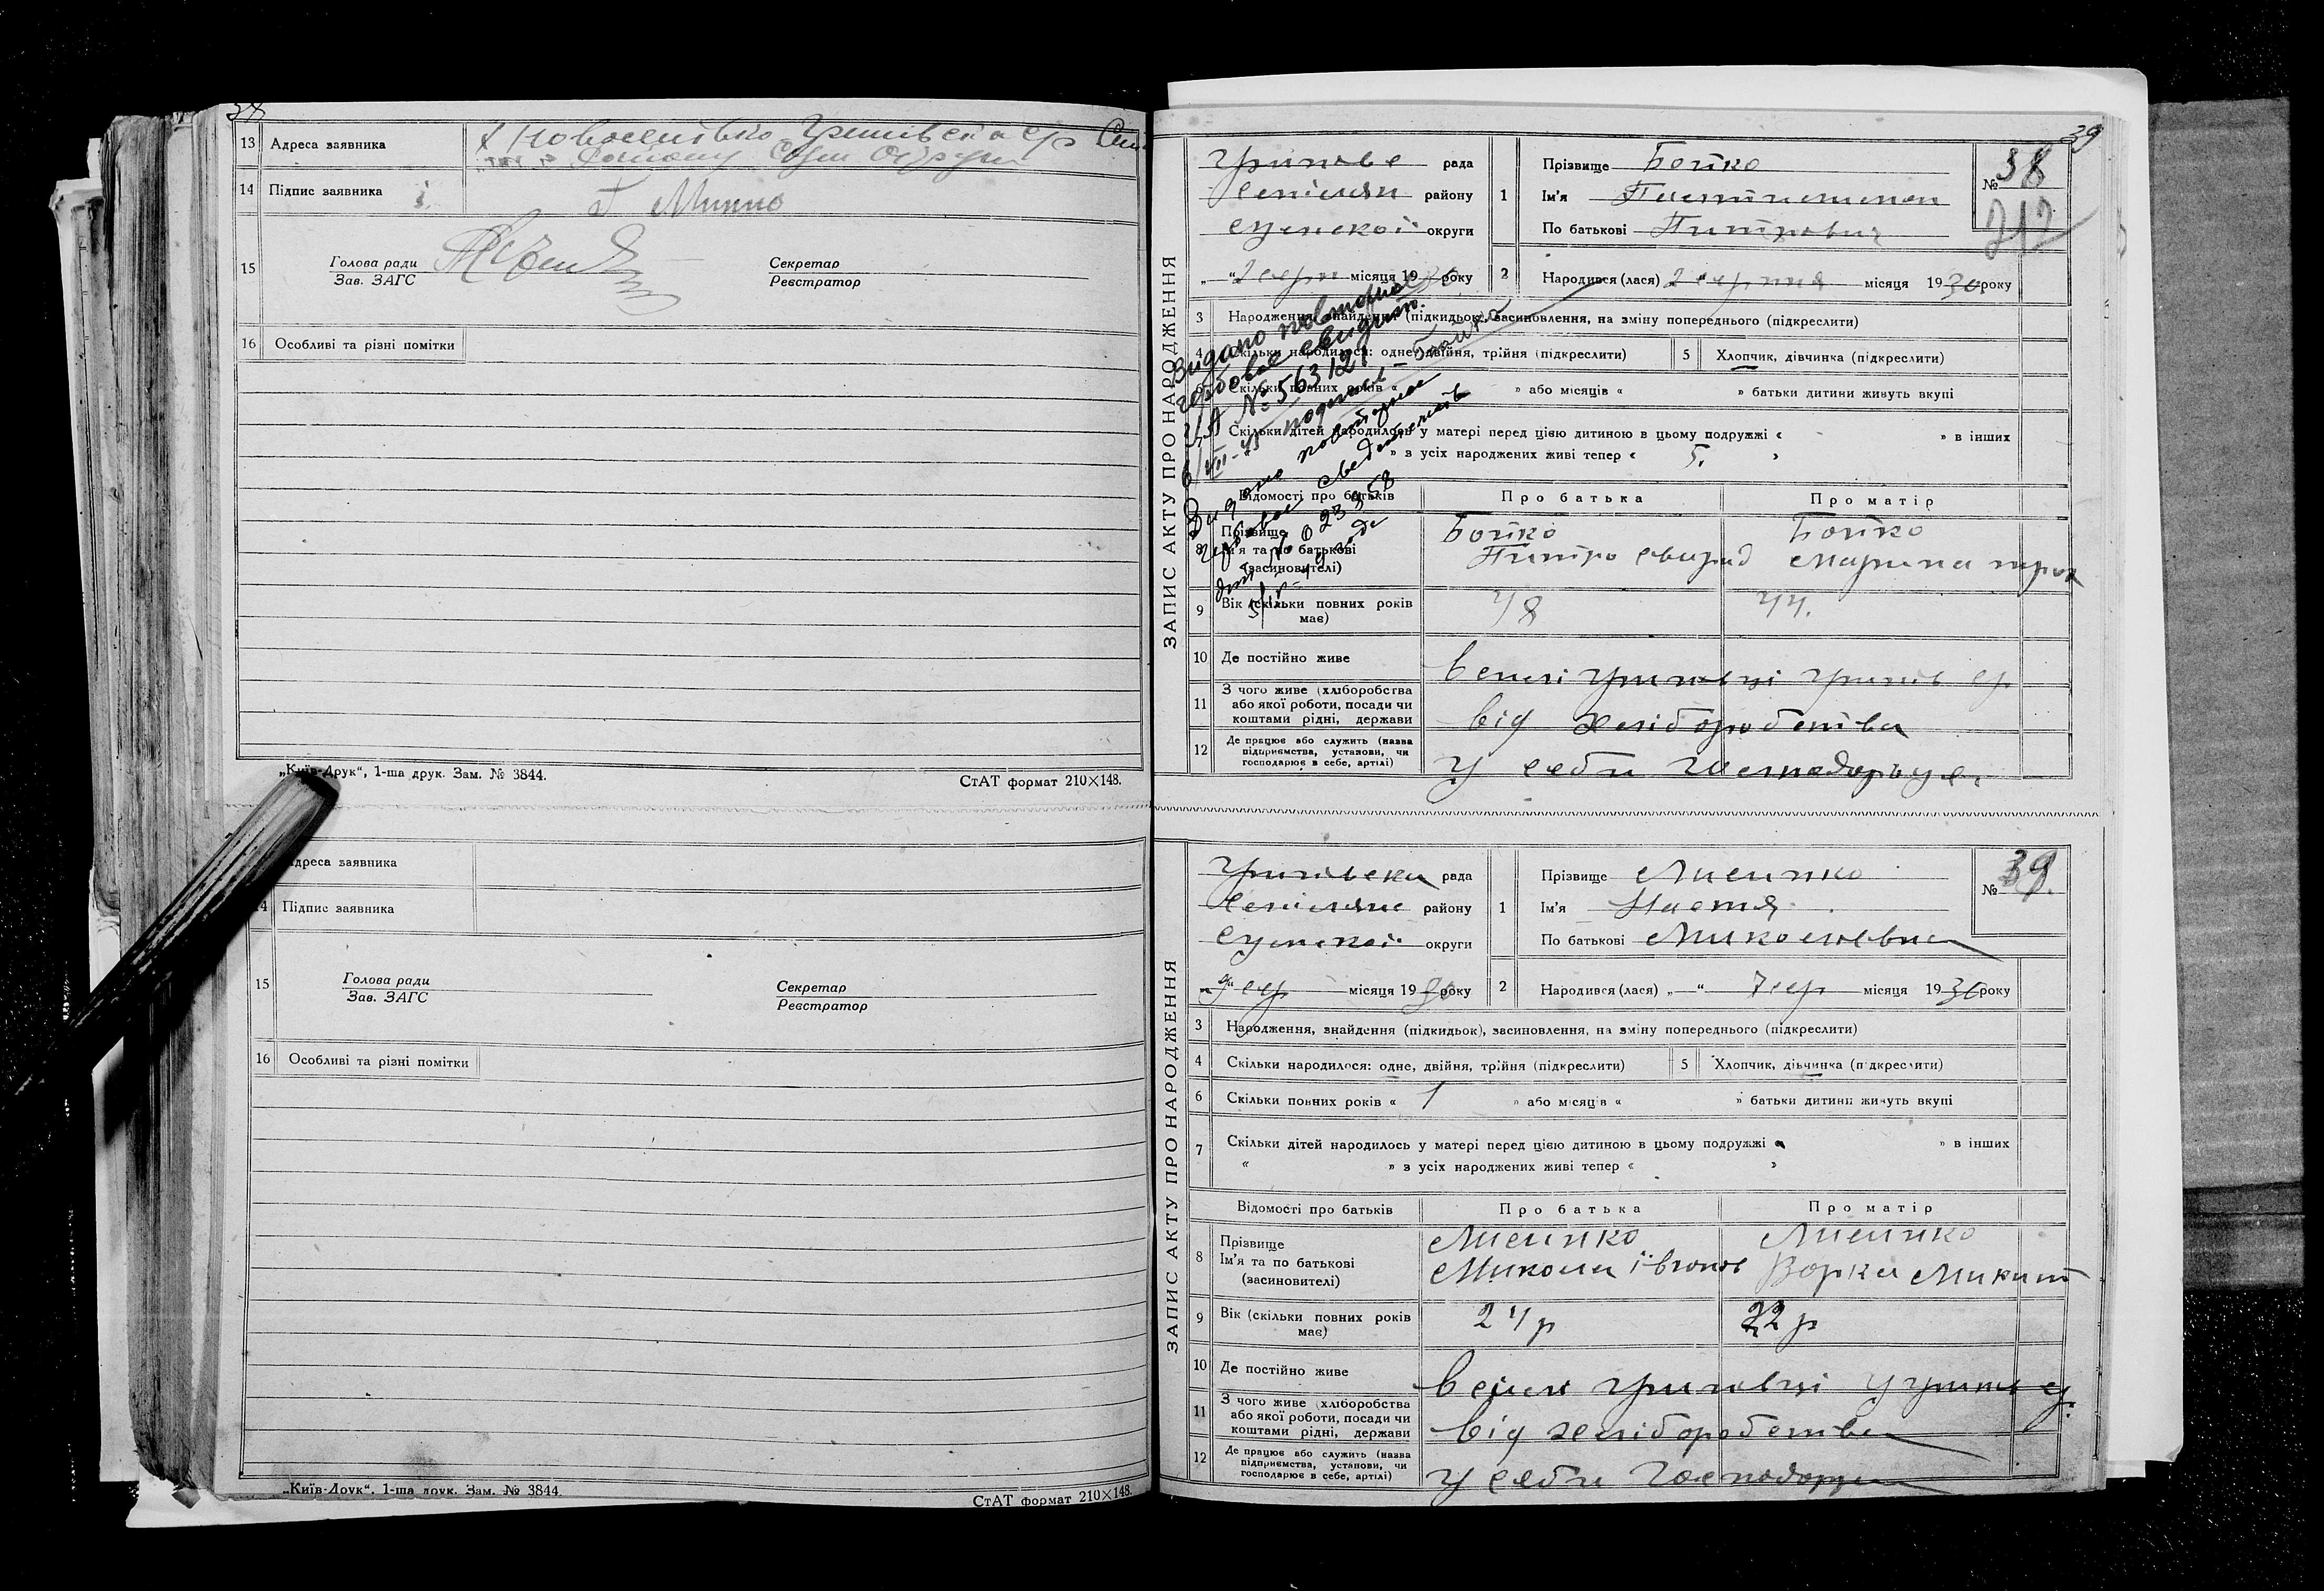 38
13 Адреса заявника
х Новоселівко Грипівська с/р
14 Підпис заявника
15 Голова ради
Зав. ЗАГС
Секретар
Реєстратор
16 Особливі та різні помітки
„Київ-Друк“, 1-ша друк. Зам. № 3844.
СтАТ формат 210×148.
Адреса заявника
14 Підпис заявника
15 Голова ради
Зав. ЗАГС
Секретар
Реєстратор
16 Особливі та різні помітки
„Київ-Друк“, 1-ша друк. Зам. № 3844.
СтАТ формат 210×148.
39
ЗАПИС АКТУ ПРО НАРОДЖЕННЯ
рада
району
Сумскої округи
„ “ 2 серп місяця 1930 року
1 Прізвище Бойко
Ім’я
По батькові Питрович
№ 38
212
2 Народився (лася) 2 серпня місяця 1930 року
3 Народження, знайдення (підкидьок), засиновлення, на зміну попереднього (підкреслити)
4 Скільки народилося: одне, двійня, трійня (підкреслити)
5 Хлопчик, дівчинка (підкреслити)
Скільки повних років « » або місяців « » батьки дитини живуть вкупі
Скільки дітей народилось у матері перед цією дитиною в цьому подружжі « » в інших
» з усіх народжених живі тепер « 5. »
Видано повторное
гербовое свидет.
№ 563121
Видано повторное
гербовое сведетельств
Відомості про батьків
Про батька
Про матір
8 Прізвище
Ім’я та по батькові
(засиновителі)
Бойко
Питро Свирид
Бойко
Марина
9 Вік (скільки повних років має)
48
44.
10 Де постійно живе
в селі Грипівці Грипів ср
11 З чого живе (хліборобства
або якої роботи, посади чи
коштами рідні, держави
від хліборобства
12 Де працює або служить (назва
підприємства, установи, чи
господарює в себе, артілі)
у себи господарує
ЗАПИС АКТУ ПРО НАРОДЖЕННЯ
Грипівска рада
району
Сумскої округи
„9“ сер місяця 1930 року
1 Прізвище Лисинко
Ім’я Настя
По батькові Миколовна
№ 39.
2 Народився (лася) „ “ 7 сер місяця 1930 року
3 Народження, знайдення (підкидьок), засиновлення, на зміну попереднього (підкреслити)
4 Скільки народилося: одне, двійня, трійня (підкреслити)
5 Хлопчик, дівчинка (підкреслити)
6 Скільки повних років « 1 » або місяців « » батьки дитини живуть вкупі
7 Скільки дітей народилось у матері перед цією дитиною в цьому подружжі « » в інших
« » з усіх народжених живі тепер « »
Відомості про батьків
Про батька
Про матір
8 Прізвище
Ім’я та по батькові
(засиновителі)
Лисинко
Микола
Лисинко
Варка Микит
9 Вік (скільки повних років має)
24 р
22 р
10 Де постійно живе
в селі Грипівці
11 З чого живе (хліборобства
або якої роботи, посади чи
коштами рідні, держави
від хліборобства
12 Де працює або служить (назва
підприємства, установи, чи
господарює в себе, артілі)
у себи господарує